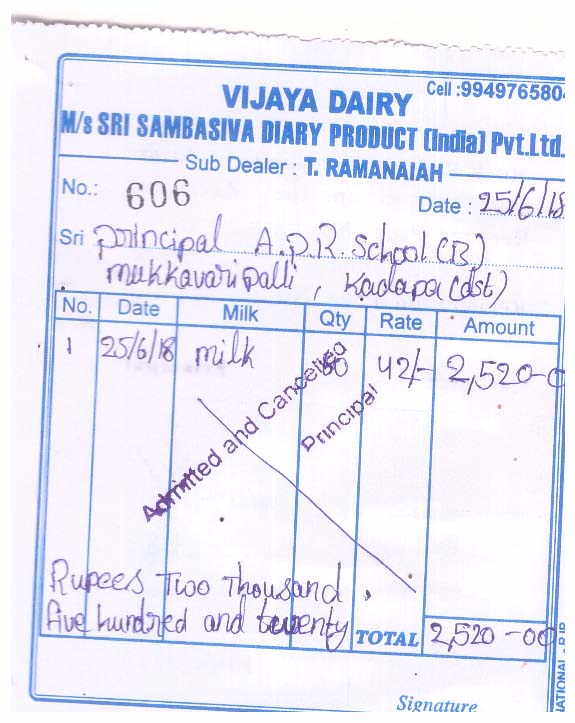 VIJAYA DAIRY Cell :9949765804
M/s SRI SAMBASIVA DIARY PRODUCT (India) Pvt.Ltd.
Sub Dealer : T. RAMANAIAH
No.: 606 Date : 25/6/18
Sri principal A.P.R. School (B)
Mukkavaripalli, Kadapa (dst)
No. Date Milk Qty Rate Amount
1 25/6/18 milk 60 42/- 2,520-0
Admitted and Cancelled
Principal
Rupees Two Thousand
five hundred and twenty TOTAL 2,520-00
Signature